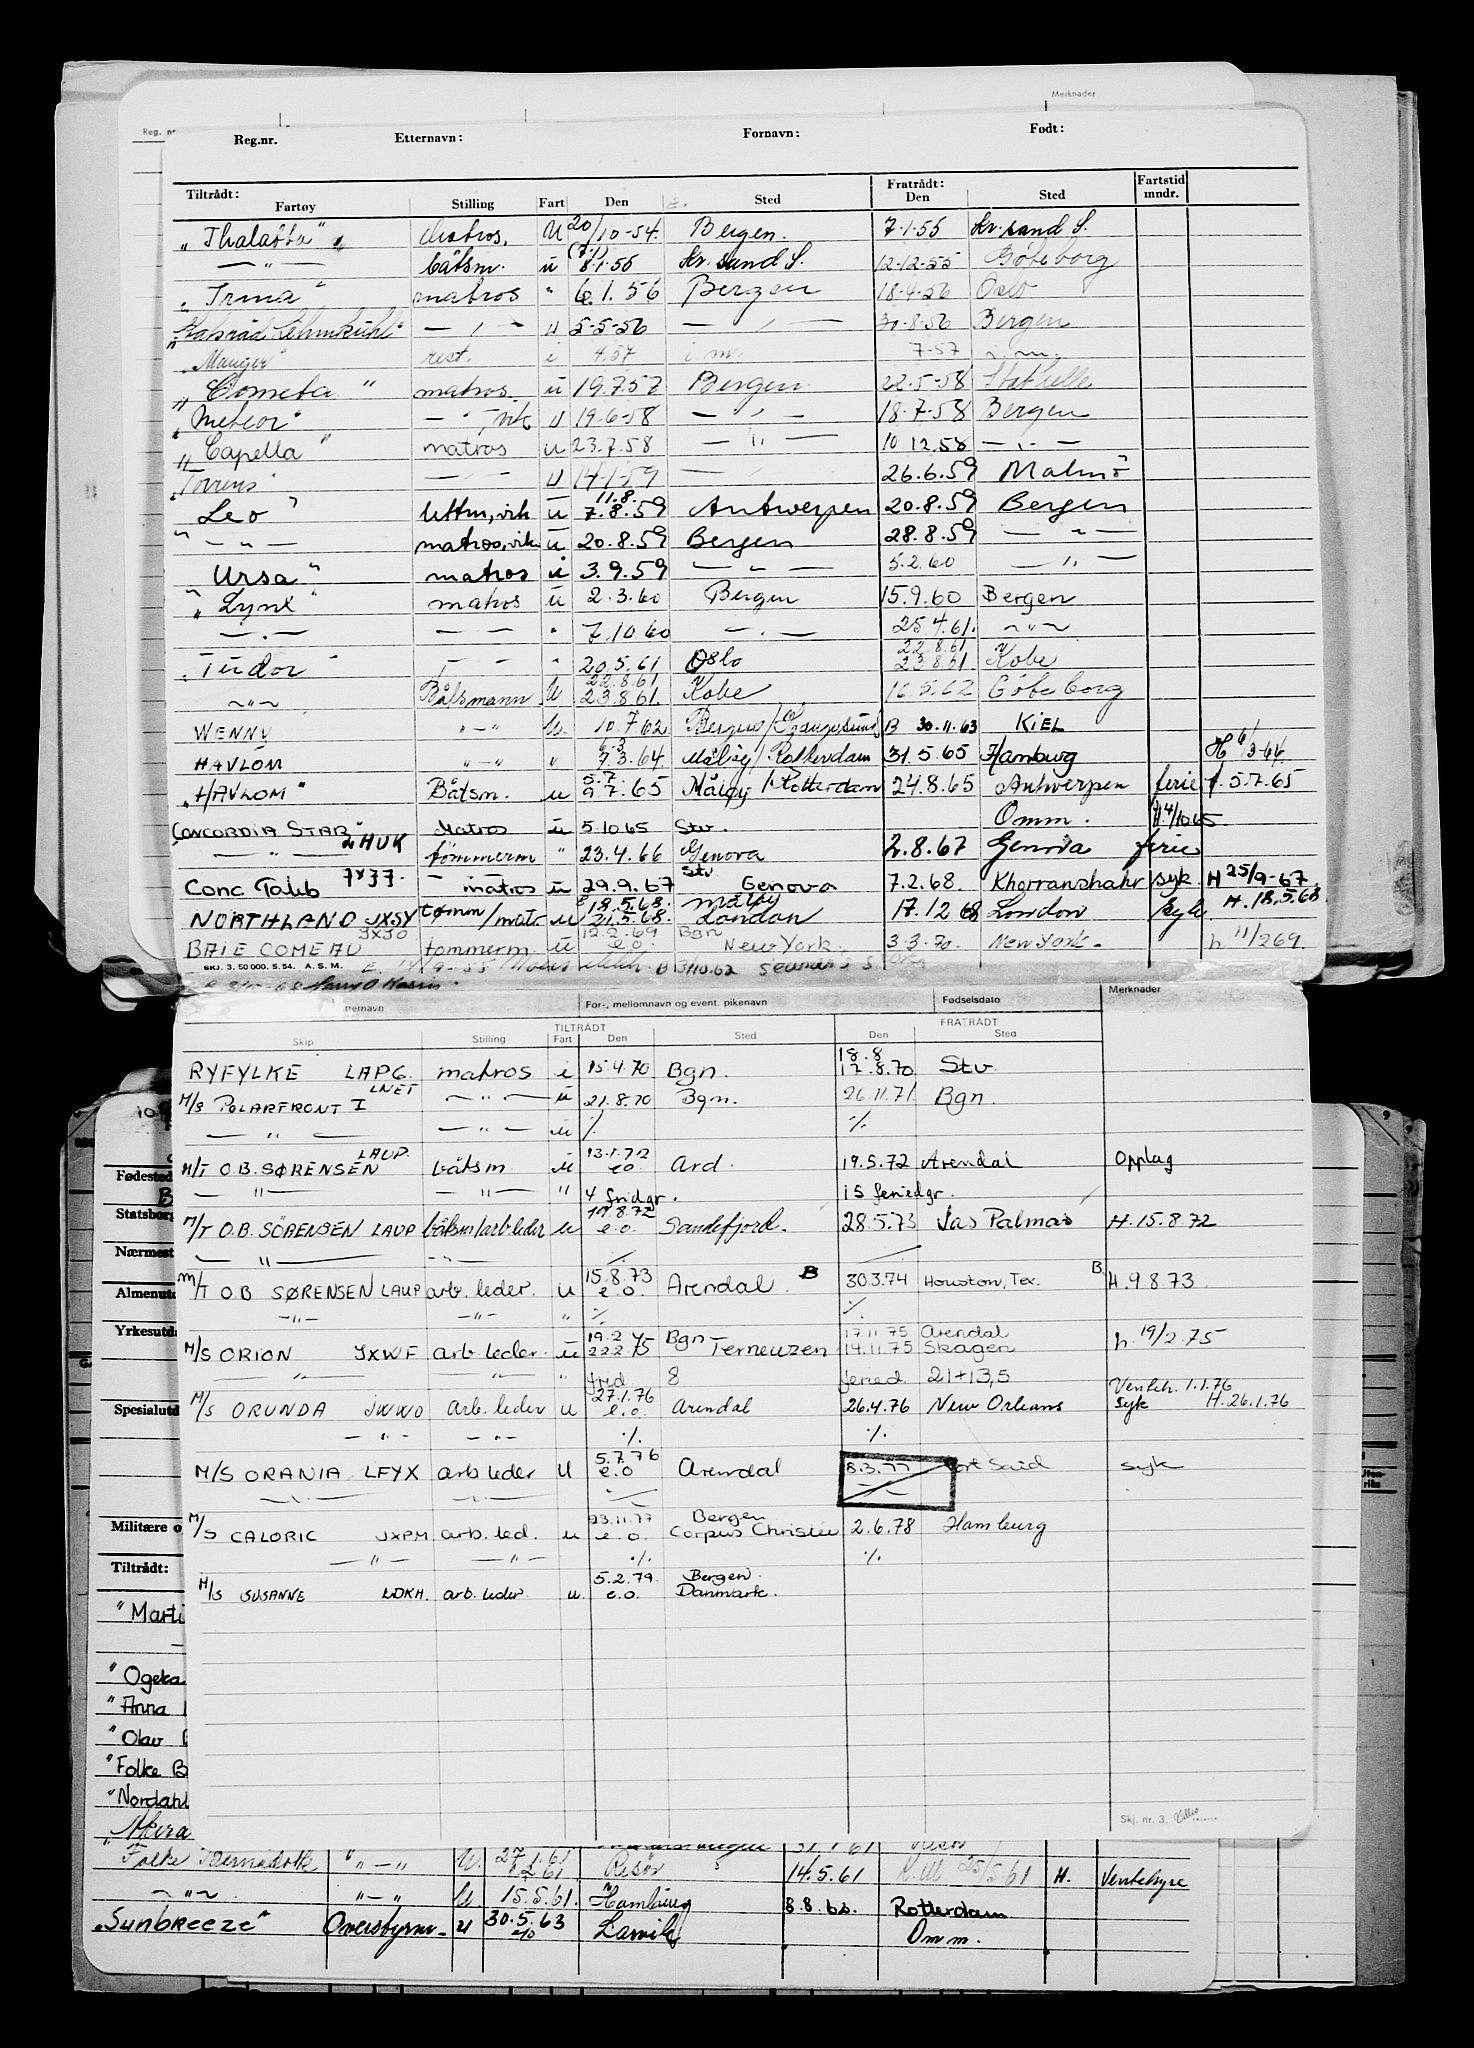 Merknader
Reg. nr
Reg.nr. Etternavn: Fornavn: Født:
Tiltrådt: Fratrådt: Fartstid
Fartøy Stilling Fart Den Sted Den Sted mndr.
"Thalatta" Matros. U 20/10-54. Bergen. 7-1-55 Kr.sand S.
— " — båtsm. u (7.1) 8.1.55 Kr. sand S. 12-12-55 Göteborg
"Irma" matros " 6.1.56 Bergen 18-4-56 Oslo
"Statsråd Lehmkuhl" — " — u 5-5-56 — " — 30-8-56 Bergen
"Manger" rest. i 4.57 i.m. 7-57 i.m.
"Cometa" matros u 19.7.57 Bergen 22-5-58 Stathelle
"Meteor" — " — vik u 19-6-58 — " — 18-7-58 Bergen
"Capella" matros u 23.7.58 — " — 10 12.58 — " —
"Torrens" — " — u 14-1-59 — " — 26.6.59 Malmö
11.8.
"Leo" lettm, vik u 7.8.59 Antwerpen 20.8.59 Bergen
" — " — matros, vik u 20.8.59 Bergen 28.8.59 — " —
"Ursa" matros i 3.9.59 — " — 5.2.60 — " —
"Lynx" matros u 2.3.60 Bergen 15.9.60 Bergen
— " — — " — " 7.10.60 — " — 25.4.61. — " —
22.8.61
"Tudor" — " — " 20.5.61 Oslo 23.8.61. Kobe
22.8.61
— " — Båtsmann U 23.8.61. Kobe 16.5.62 Göteborg
WENNY — " — U. 10.7.62 Bergen/Haugesund B 30.11.63 KIEL
6-3
HAVLOM — " — " 9.3.64. Måløy/Rotterdam 31.5.65 Hamburg H 6/3-64.
5.7.
"HAVLOM" Båtsm. u 9.7.65 Måløy/Rotterdam 24.8.65 Antwerpen ferie f. 5.7.65
"CONCORDIA STAR" Matros u 5.10.65 Stv. Omm. H.4/10.65
— " — LHUK tömmerm " 23.4.66 Genova 2.8.67 Genova ferie
Stv
Conc Talib JXJJ. matros u 29.9.67 Genova 7.2.68. Khorramshahr syk H 25/9-67.
18.5.68. Måløy H. 18.5.68
NORTHLAND JXSY tømm/matr u 21.5.68. London 17.12 68 London syk
JXJO 12.2.69 Bgn
BAIE COMEAU tømmerm. u e.o. New York. 3-3-70. New York. h 11/269.
SKJ. 3. 50 000. 5. 54. A. S. M.
ternavn For-, mellomnavn og event. pikenavn Fødselsdato Merknader
TILTRÅDT FRATRÅDT
Skip Stilling Fart Den Sted Den Sted
18.8
RYFYLKE LAPG. matros i 15.4.70 Bgn. 17.8.70 Stv
LNET
M/S POLARFRONT I — " — u 21.8.70 Bgn. 26.11.71 Bgn.
— " — — " — u % %
LAUP. 13.1.72
M/T O.B. SØRENSEN båtsm u e.o. Ard. 19.5.72 Arendal Opplag
— " — — " — " 4 fridgr. 15 feriedgr.
19.8.72
M/T O.B. SÖRENSEN LAUP båtsm/arb leder u e.o. Sandefjord. 28.5.73 Las Palmas H. 15.8.72
— " — — " — % —
15.8.73
M/T O B SØRENSEN LAUP arb. leder. u e.o. Arendal B 30.3.74 Houston, Tex. B. H. 9.8.73.
— " — — " — % %
19.2 75 Bgn 17.11.75 Arendal
M/S ORION JXWF arb leder. u 22.2 75 Terneuzen 14.11.75 Skagen h. 19/2.75
— " — — " — " fried 8 feried 21+13,5
27.1.76 Ventetr. 1.1.76
M/S ORUNDA JWWO Arb. leder u e.o. Arendal 26.4.76 New Orleans syk H. 26.1.76
— " — — " — % %
5.7.76
M/S ORANIA LFYX arb leder u e.o Arendal 8.3.77 Port Said syk
— " — — " — %
23.11.77 Bergen
M/S CALORIC JXPM arb. led. u e.o. Corpus Christie 2.6.78 Hamburg
— " — — " — % %
5.2.79. Bergen.
M/S SUSANNE LDKH. arb. leder. u. e.o. Danmark.
Skj. nr. 3.
Fødested
Statsborg
Nærmest
Almenutd
Yrkesutda
Spesialutd
Militære o
Tiltrådt:
"Marti
"Ogeka
"Anna
"Olav
"Folke B
"Nordahl
"Mira
27.1.61 31.1.61 Risör
"Folke Bernadotte " — " U. 1.2.61 Risör 14.5.61 25/5.61 H. Ventehyre
— " — " — " U 15.5.61. Hamburg 8.8.62. Rotterdam
"SUNBREEZE" Overstyrm. u 30.5.63 Larvik Omm.